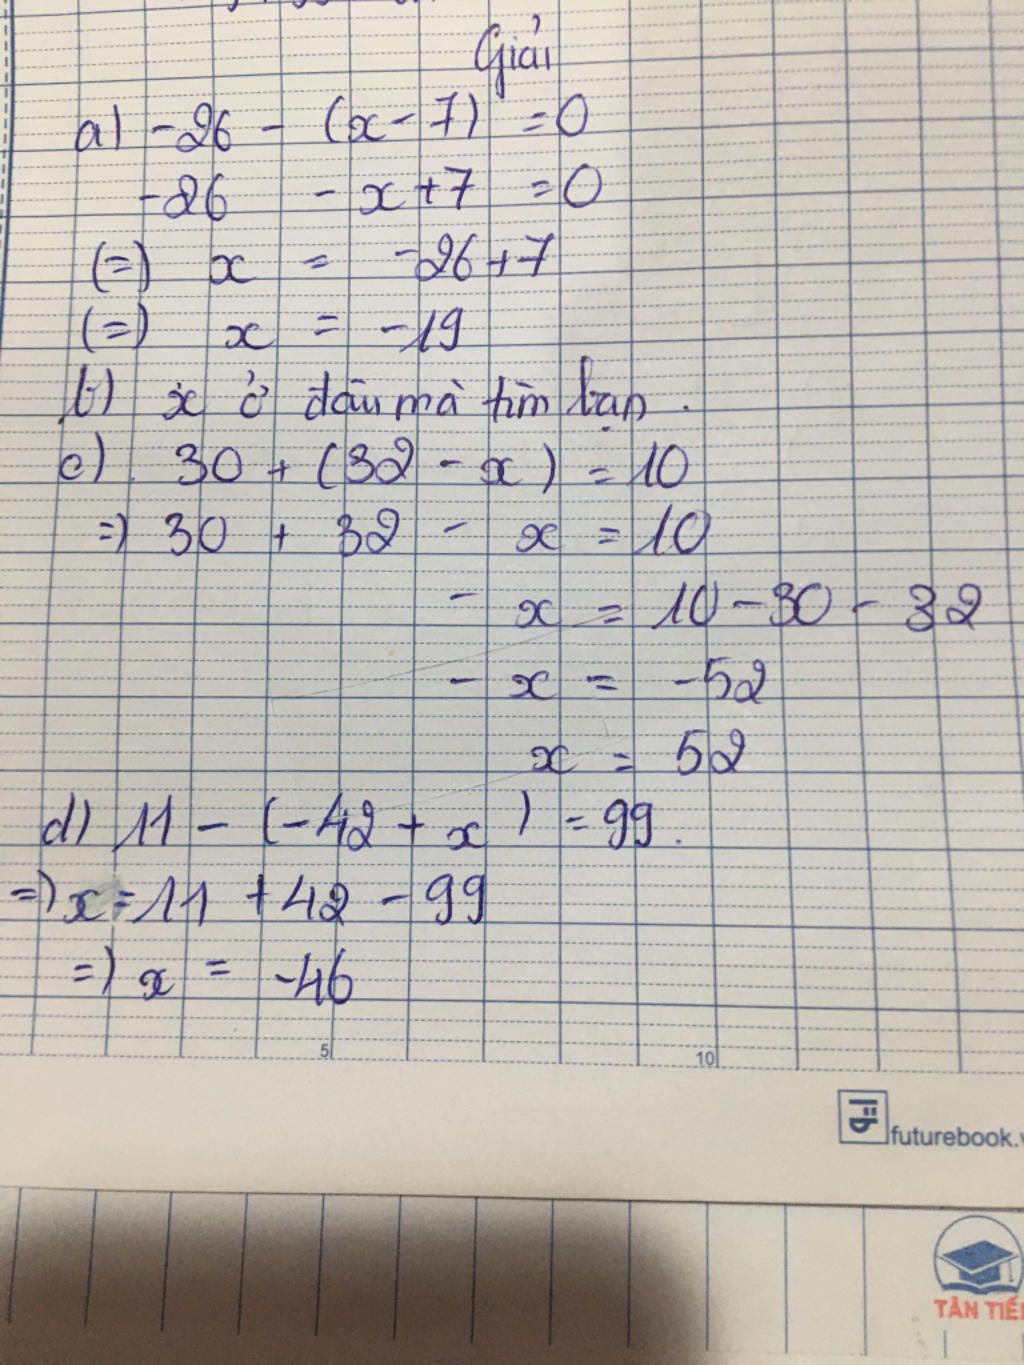 Giải
a) -26 - (x - 7) = 0
-26 - x + 7 = 0
(=) x = -26 + 7
(=) x = -19
b) x ở đâu mà tìm bạn.
c) 30 + (32 - x) = 10
=) 30 + 32 - x = 10
- x = 10 - 30 - 32
- x = -52
x = 52
d) 11 - (-42 + x) = 99.
=) x = 11 + 42 - 99
=) x = -46
5 10
futurebook.v
TÂN TIẾ